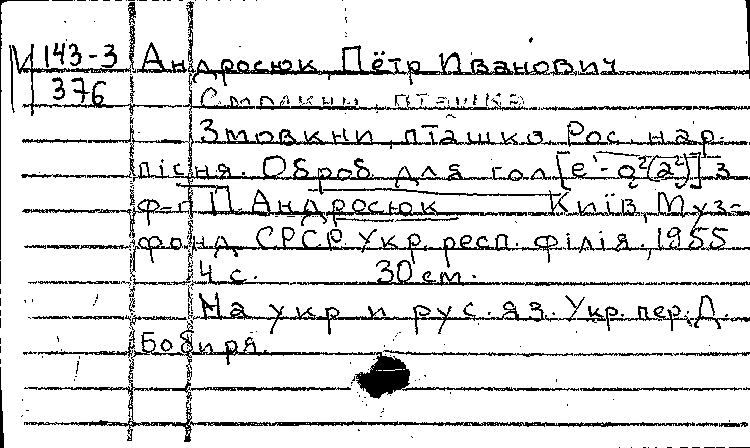 М 143-3 Андросюк, Пётр Иванович
376 Смолкни, пташка
Змовкни, пташко. Рос. нар.
пісня. Оброб. для гол. [e¹-g²(a²)] з
ф-п. П. Андросюк Київ, Муз-
фонд СРСР. Укр. респ. філія, 1955
4 с. 30 см.
На укр. и рус. яз. Укр. пер. Д.
Бобиря.